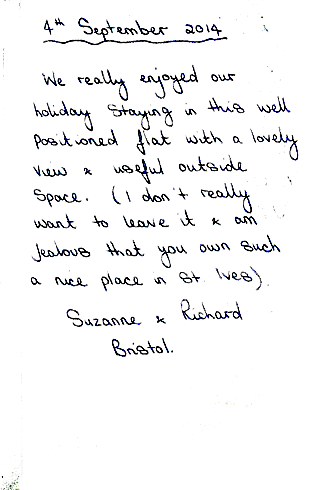 4th September 2014
We really enjoyed our
holiday staying in this well
positioned flat with a lovely
view & useful outside
space. (I don't really
want to leave it & am
jealous that you own such
a nice place in St. Ives)
Suzanne & Richard
Bristol.